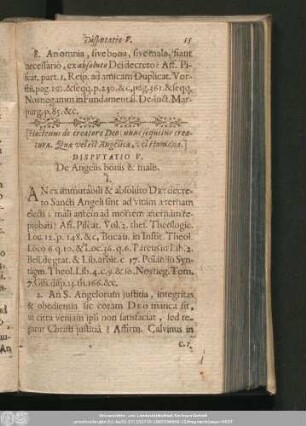 Disputatio V. 15
8. An omnia, sive bona, sive mala, fiant
necessariò, ex absoluto Dei decreto? Aff. Pi-
scat. part. 1. Resp. ad amicam Duplicat. Vor-
stii, pag. &seqq. p. 230. &c, pag. 361. &seqq.
in Fundamental. Defunct. Mar-
purg. p. 85. &c.
[Hactenus de creatore Deo: nunc sequitur crea-
tura. Quæ vel est Angelica, vel Humana.]
DISPUTATIO V.
De Angelis bonis & malis.
1.
AN ex immutabili & absoluto DEI decre-
to Sancti Angeli sint ad vitam æternam
electi: mali autem ad mortem æternam re-
probati? Aff. Piscat. Vol. 2. thes. Theologic.
Loc. 12. p. 148. &c, Bucan. in Instit. Theol.
Loco 6. q. 10. & Loc. 36. q. 6. Parens in Lib. 2.
Bell. de grat. & Lib. arbit. c. 17. Polan. in Syn-
tagm. Theol. Lib. 4. c. 9. & 10. Tom.
7. disp. 13. th. 166. &c.
2. An S. Angelorum justitia, integritas
& obedientia sic coram DEO manca sit,
ut citra veniam ipsi non satisfaciat, sed re-
gatur Christi justitiâ? Affirm. Calvinus in
C. 1.